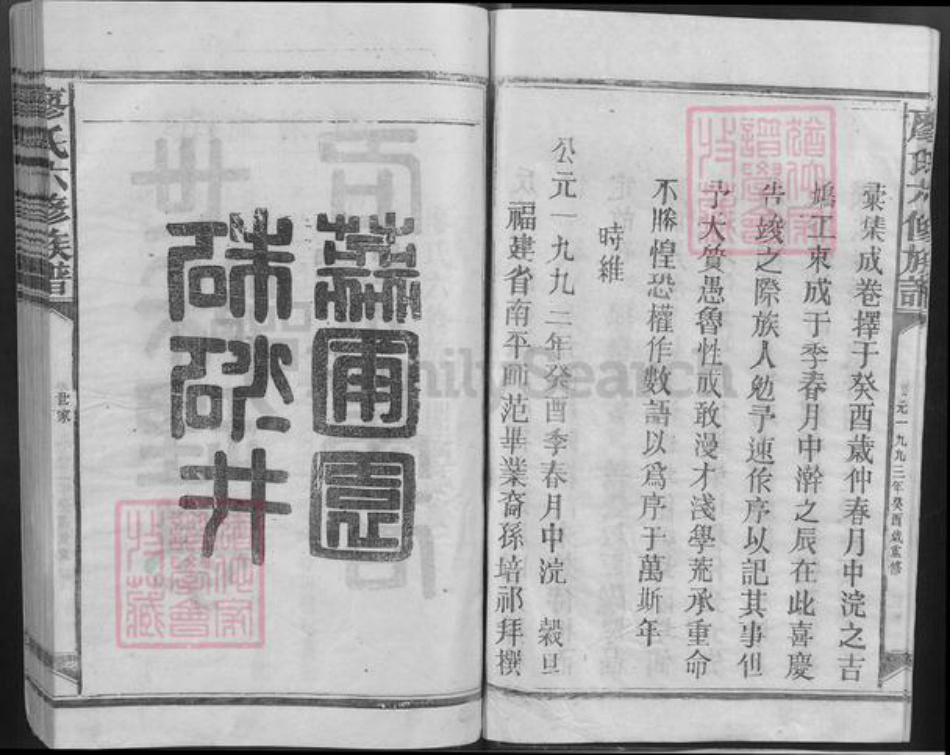 廖氏六修族譜
公元一九九三年癸酉歲重修
彚集成卷擇于癸酉歲仲春月中浣之吉
鳩工東成于季春月中澣之辰在此喜慶
告竣之際族人勉予速作序以記其事但
予大質愚魯性成敢漫才淺學荒承重命
不勝惶恐權作數語以爲序于萬斯年
時維
公元一九九三年癸酉季春月中浣 穀旦
福建省南平師范畢業裔孫培祁拜撰
圃園
硃砂井
廖氏六修族譜
世家
FamilySearch